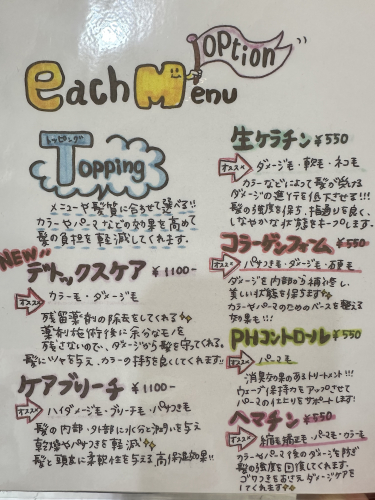 OPTION
each Menu
トッピング
Topping
メニューや髪質に合せて選べる!!
カラーやパマなどの効果を高め
髪の負担を軽減してくれます。
NEW
デトックスケア ¥1100-
オススメ カラー毛・ダメージ毛
残留薬剤の除去をしてくれる
薬剤施術後に余分なモノを
残さないので、ダメージから髪を守ってくれる。
髪にツヤを与え、カラーの持ちを良くしてくれます!!
ケアブリーチ ¥1100-
オススメ ハイダメージ毛・ブリーチ毛・パサつき毛
髪の内部・外部に水分と潤いを与え
乾燥やパサつきを軽減
髪と頭皮に柔軟性を与える高保湿効果!!
生ケラチン ¥550
オススメ ダメージ毛・軟毛・ネコ毛
カラーなどによって髪が受ける
ダメージの進行を低下させる!!!
髪の強度を保ち、指通りを良く、
しなやかな状態をキープします。
コラーゲンフォーム ¥550
オススメ パサつき毛・ダメージ毛・硬毛
ダメージを内部から補修し、
美しい状態を保ちます
カラーやパーマのためのベースを整える
効果も!!!
PHコントロール ¥550
オススメ パーマ毛
消臭効果のあるトリートメント!!!
ウェーブ保持力をアップさせて
パーマの仕上りをサポートします!
ヘマチン ¥550
オススメ 縮毛矯正毛・パーマ毛・カラー毛
カラーやパーマ後のダメージを防ぎ
髪の強度を回復してくれます。
ゴワつきをおさえ、ダメージケアを
してくれます